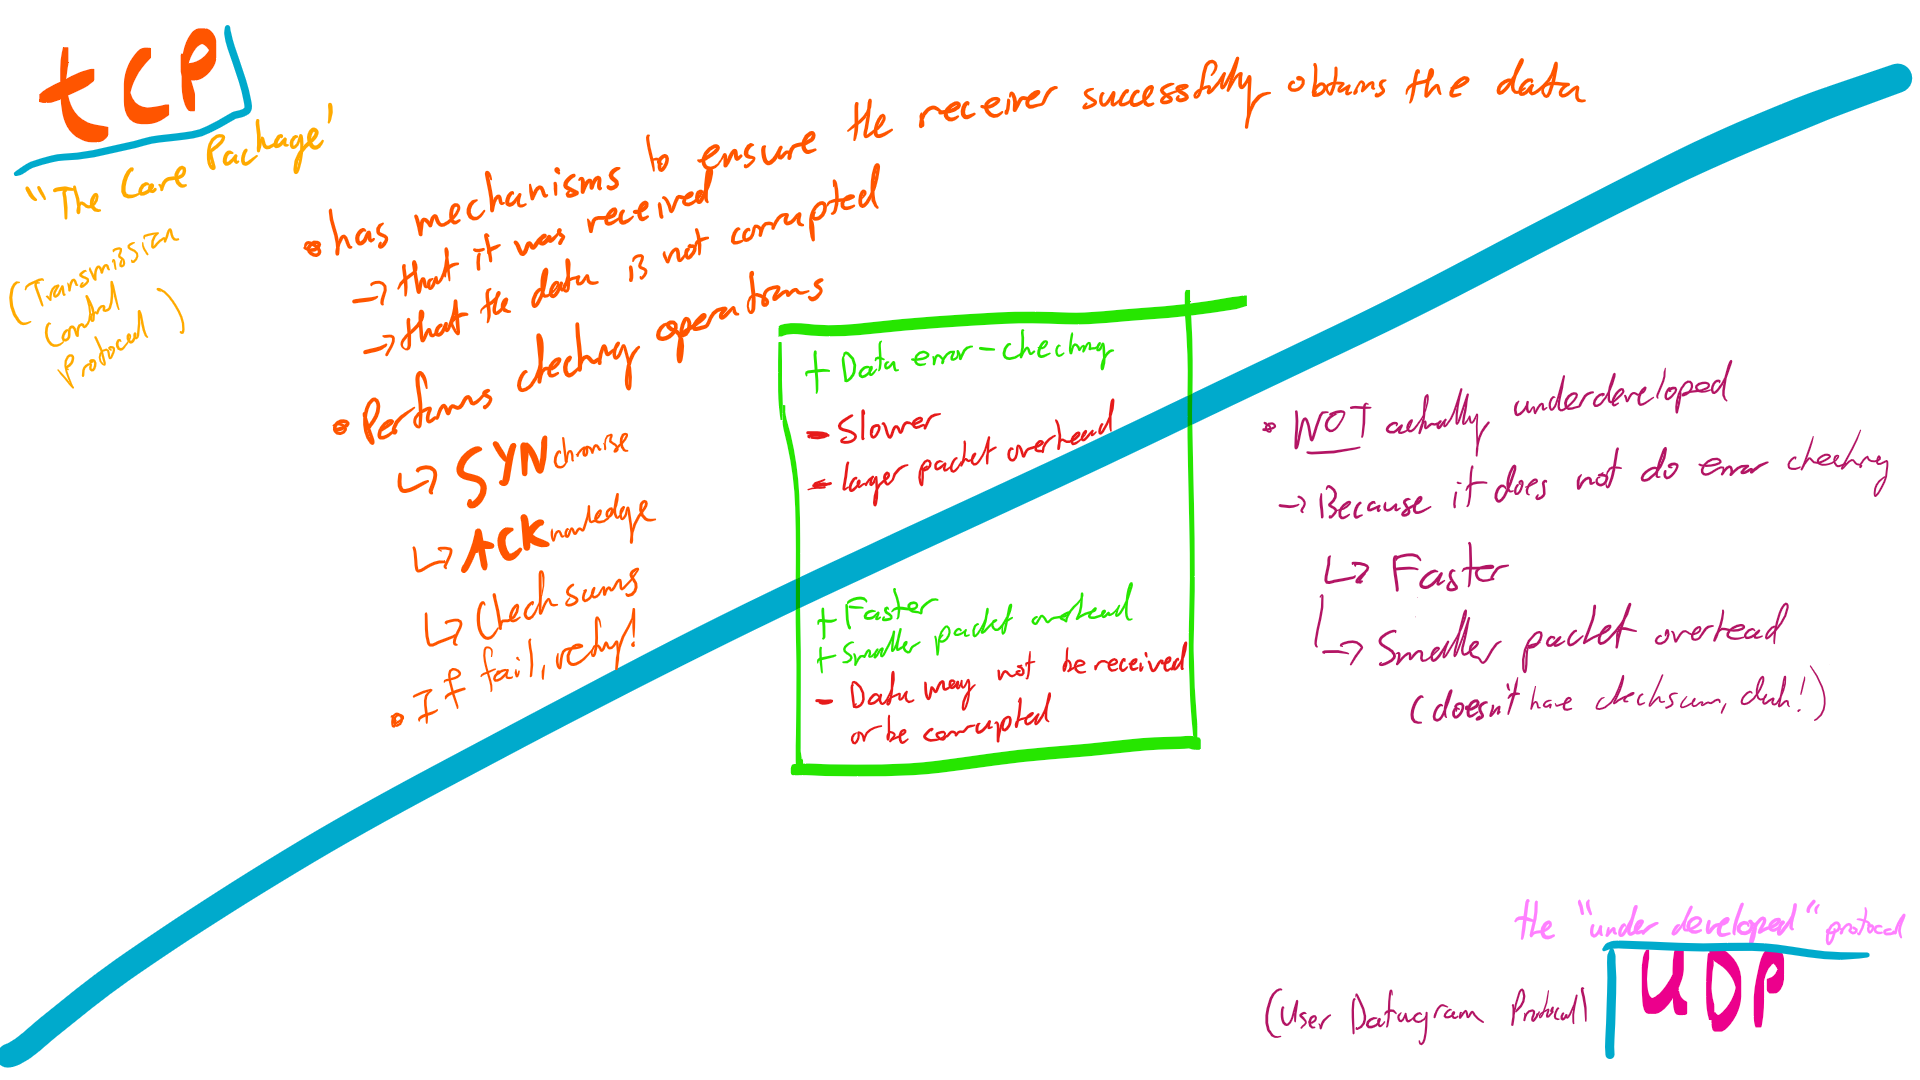 tCP
"The Care Package'
(Transmission
Control
Protocol)
• has mechanisms to ensure the receiver successfully obtains the data
→ that it was received
→ that the data is not corrupted
• Performs checking operations
↳ SYNchronise
↳ ACKnowledge
↳ Checksums
• If fail, retry!
+ Data error-checking
- Slower
- larger packet overhead
+ Faster
+ Smaller packet overhead
- Data may not be received
or be corrupted
• NOT actually underdeveloped
→ Because it does not do error checking
↳ Faster
↳ Smaller packet overhead
(doesn't have checksum, duh!)
the "under developed" protocol
(User Datagram Protocol)
UDP